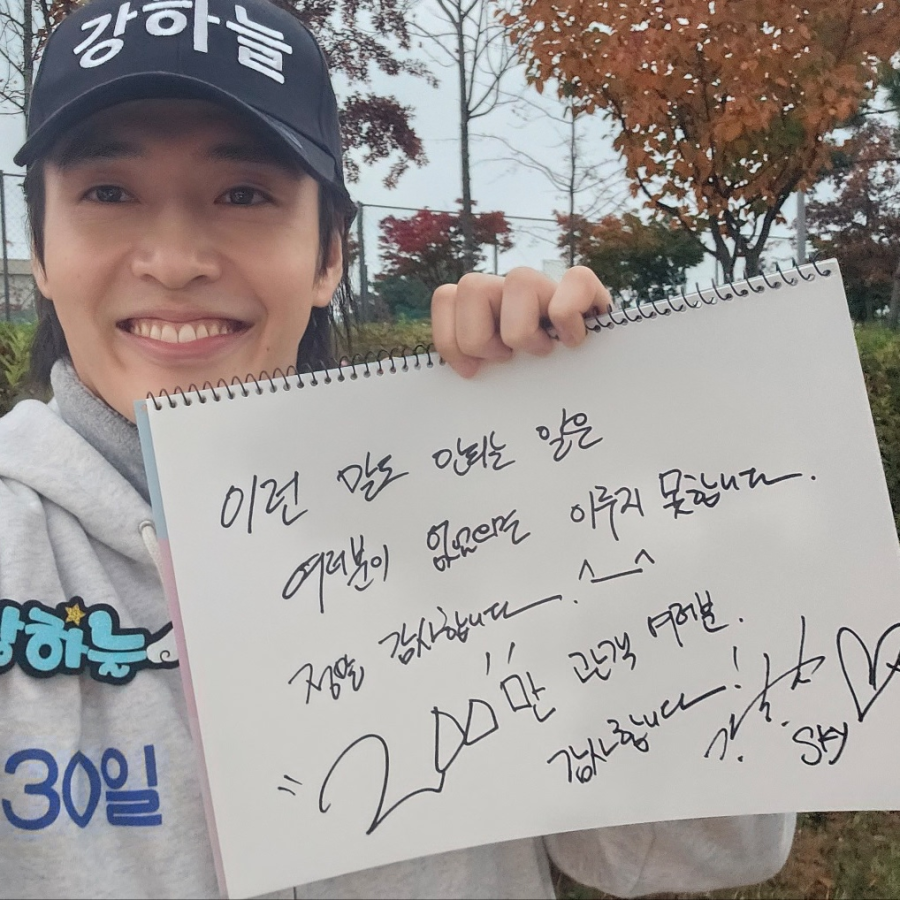 강하늘
이런 말도 안되는 일은
여러분이 없었으면 이루지 못합니다.
정말 감사합니다. ^_^
"200"만 관객 여러분.
감사합니다!
Sky
강하늘
30일